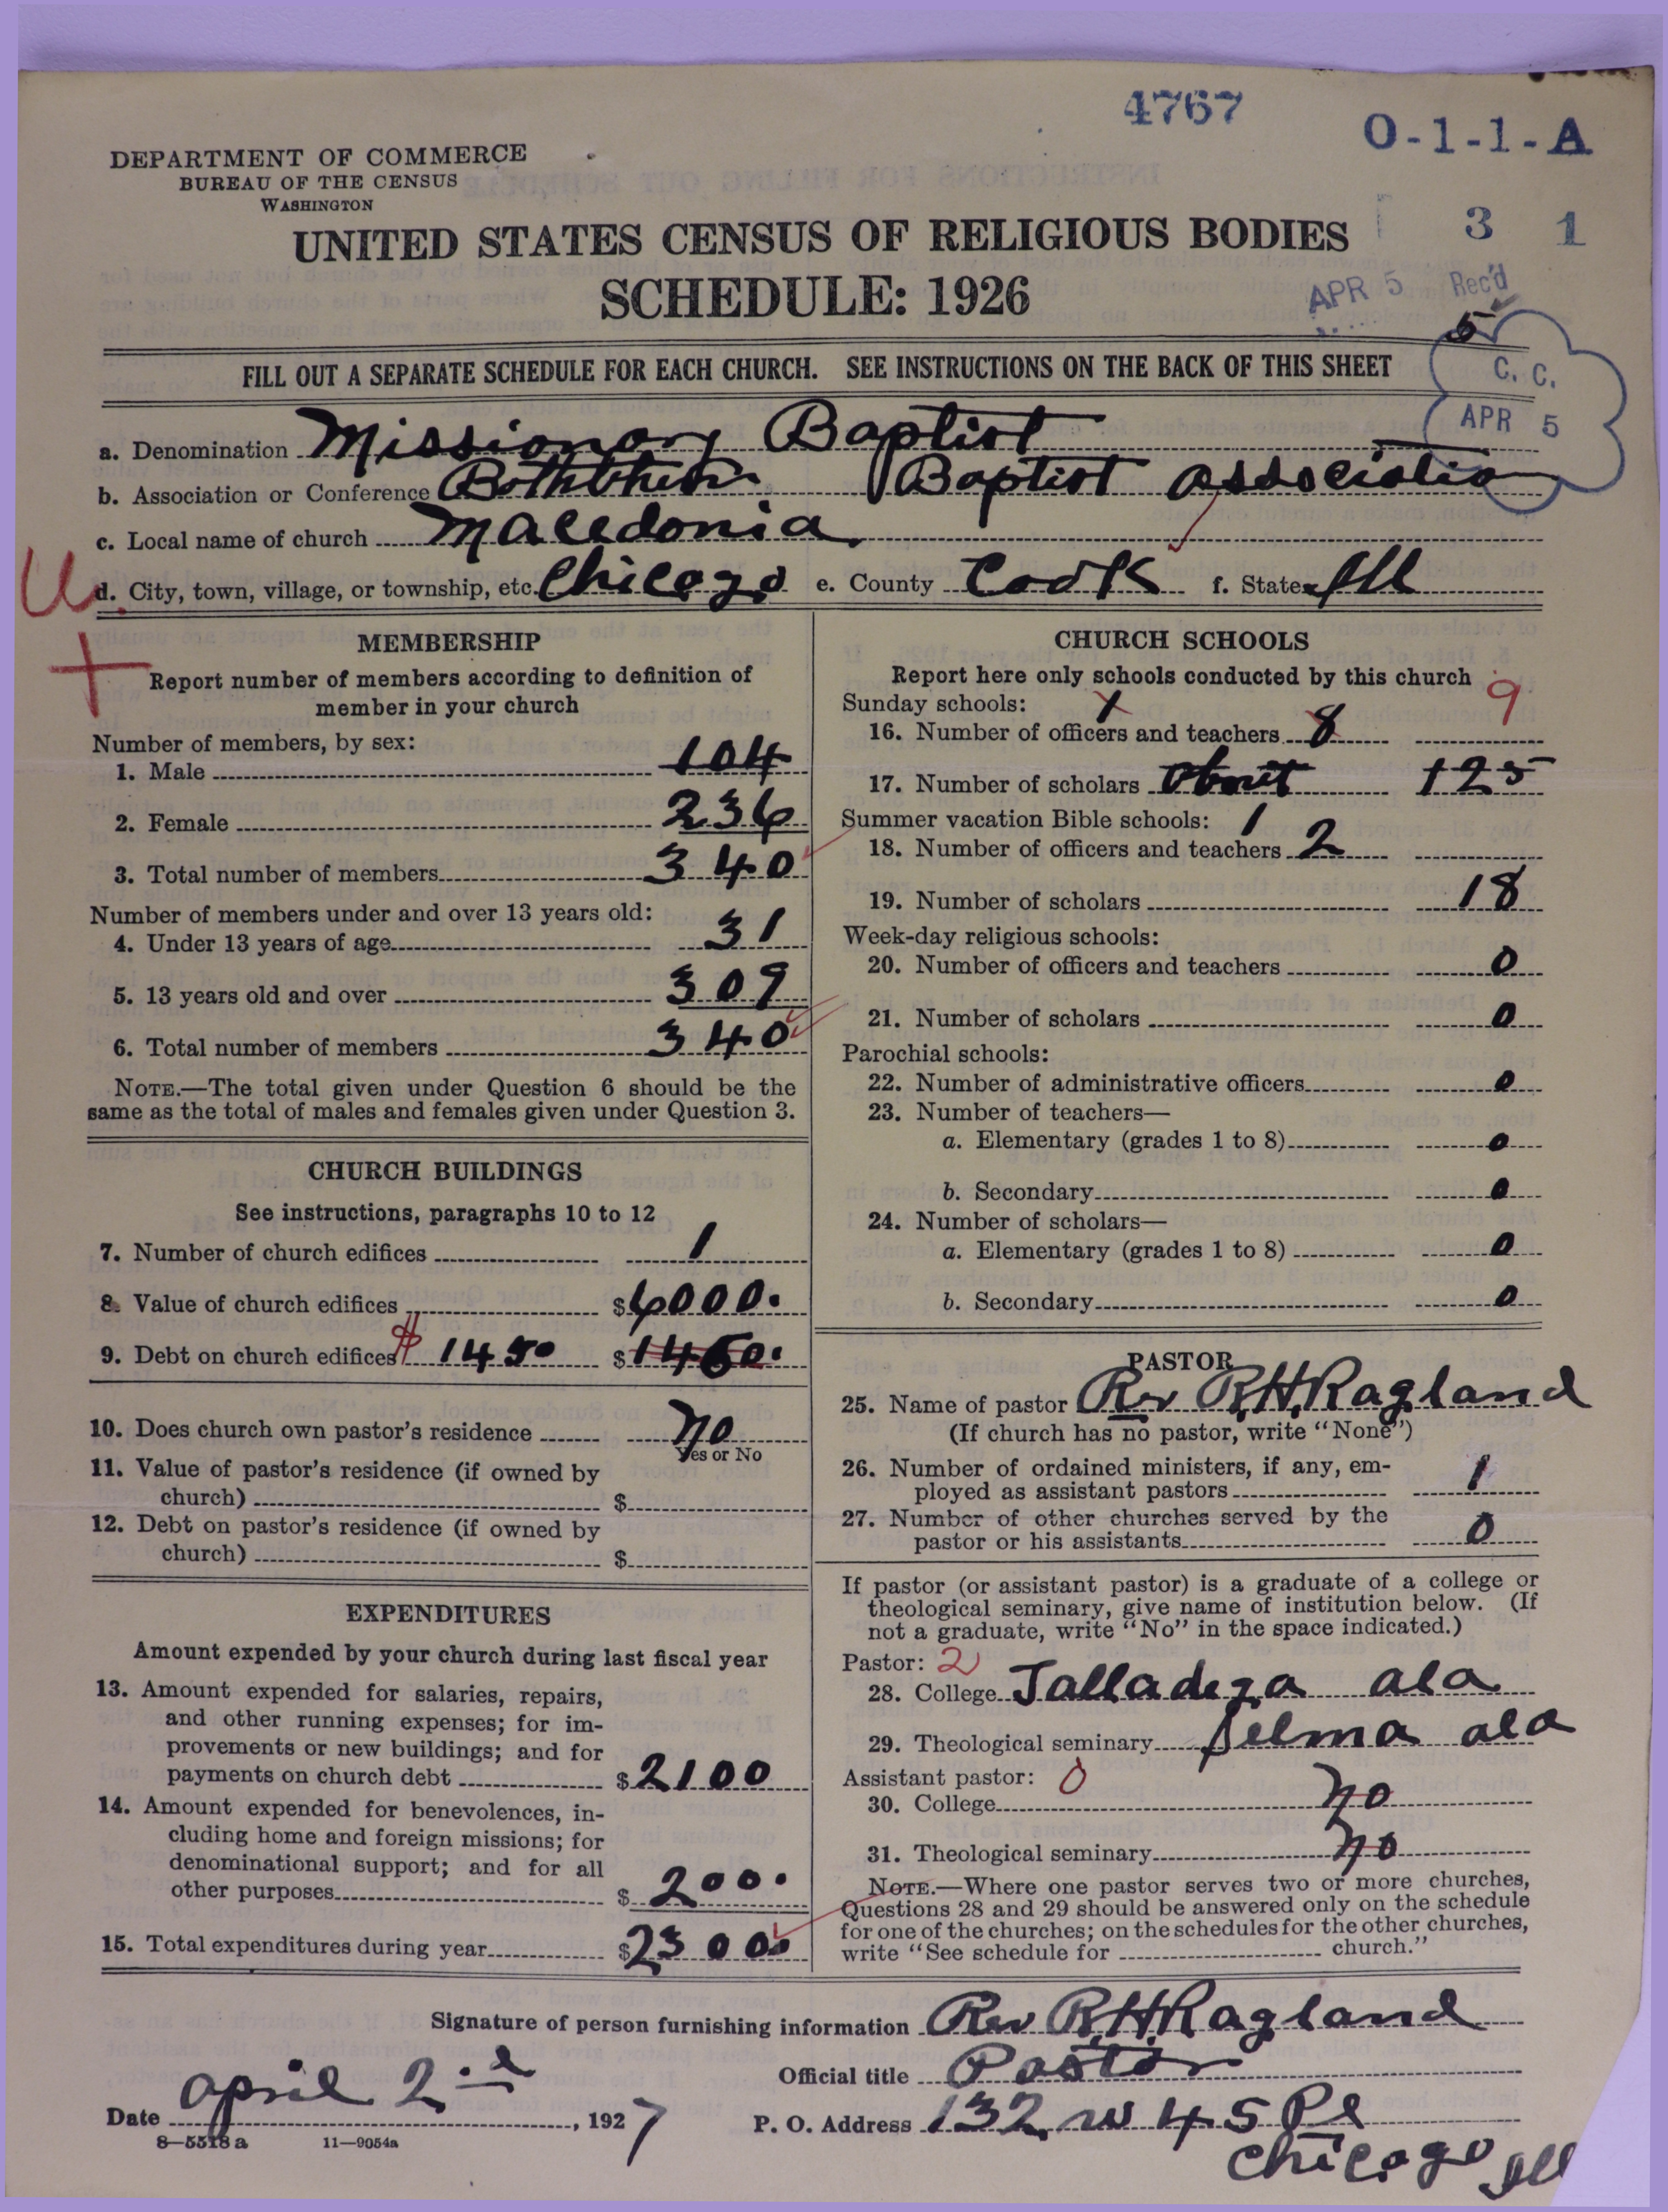 4767
O-1-1-A
DEPARTMENT OF COMMERCE
BUREAU OF THE CENSUS
WASHINGTON
UNITED STATES CENSUS OF RELIGIOUS BODIES
3 1
SCHEDULE: 1926
APR 5 Rec'd
5
FILL OUT A SEPARATE SCHEDULE FOR EACH CHURCH. SEE INSTRUCTIONS ON THE BACK OF THIS SHEET
C. C.
APR 5
a. Denomination Missionary Baptist
b. Association or Conference Baptist Associatio
c. Local name of church Macedonia
d. City, town, village, or township, etc. Chicago e. County Cook f. State Ill
U
MEMBERSHIP
Report number of members according to definition of
member in your church
Number of members, by sex:
1. Male 104
2. Female 236
3. Total number of members 340
Number of members under and over 13 years old:
4. Under 13 years of age 31
5. 13 years old and over 309
6. Total number of members 340
NOTE.—The total given under Question 6 should be the
same as the total of males and females given under Question 3.
CHURCH BUILDINGS
See instructions, paragraphs 10 to 12
7. Number of church edifices 1
8. Value of church edifices $6000.
9. Debt on church edifices $ 1450 $1460.
10. Does church own pastor's residence No
Yes or No
11. Value of pastor's residence (if owned by
church) $
12. Debt on pastor's residence (if owned by
church) $
EXPENDITURES
Amount expended by your church during last fiscal year
13. Amount expended for salaries, repairs,
and other running expenses; for im-
provements or new buildings; and for
payments on church debt $2100
14. Amount expended for benevolences, in-
cluding home and foreign missions; for
denominational support; and for all
other purposes $ 200.
15. Total expenditures during year $2300
CHURCH SCHOOLS
Report here only schools conducted by this church
Sunday schools: 1 9
16. Number of officers and teachers 8
17. Number of scholars about 125
Summer vacation Bible schools: 1
18. Number of officers and teachers 2
19. Number of scholars 18
Week-day religious schools:
20. Number of officers and teachers 0
21. Number of scholars 0
Parochial schools:
22. Number of administrative officers 0
23. Number of teachers—
a. Elementary (grades 1 to 8) 0
b. Secondary 0
24. Number of scholars—
a. Elementary (grades 1 to 8) 0
b. Secondary 0
PASTOR
25. Name of pastor Rev R.H.Ragland
(If church has no pastor, write "None")
26. Number of ordained ministers, if any, em-
ployed as assistant pastors 1
27. Number of other churches served by the
pastor or his assistants 0
If pastor (or assistant pastor) is a graduate of a college or
theological seminary, give name of institution below. (If
not a graduate, write "No" in the space indicated.)
Pastor: 2
28. College Talladega ala
29. Theological seminary Selma ala
Assistant pastor: 0
30. College No
31. Theological seminary No
NOTE.—Where one pastor serves two or more churches,
Questions 28 and 29 should be answered only on the schedule
for one of the churches; on the schedules for the other churches,
write "See schedule for church."
Signature of person furnishing information Rev R.H.Ragland
Official title Pastor
Date april 2nd, 1927
P. O. Address 132 W 45 Pl
Chicago Ill
8—5518 a 11—9054a